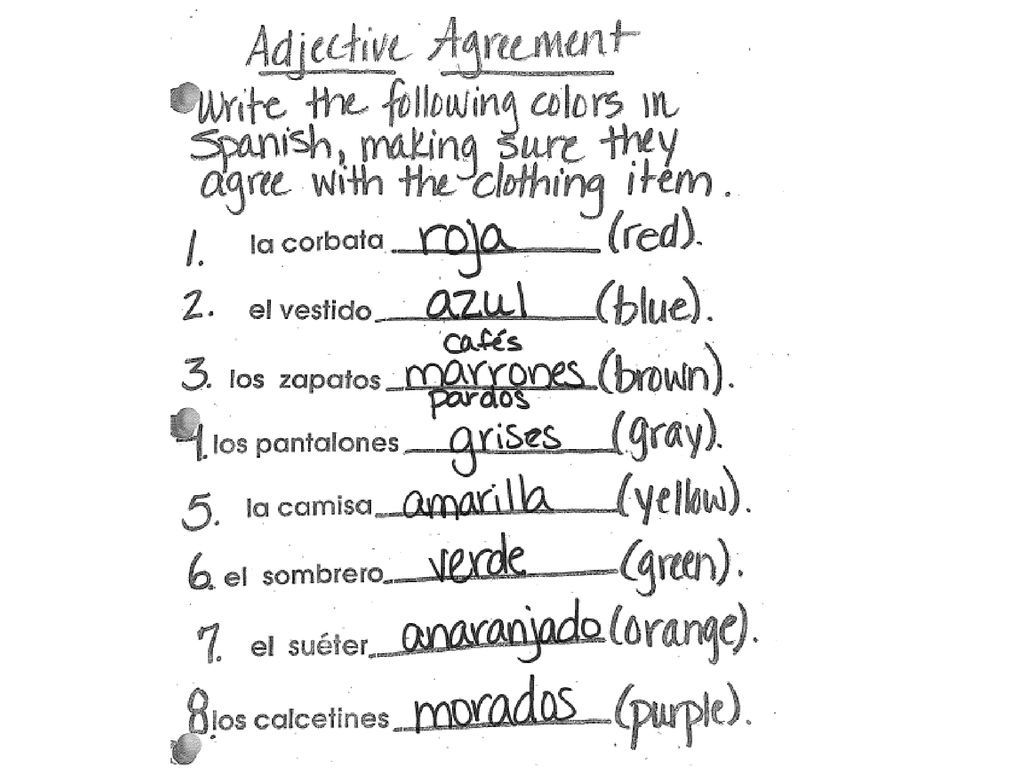 Adjective Agreement
Write the following colors in
Spanish, making sure they
agree with the clothing item.
1. la corbata roja (red).
2. el vestido azul (blue).
cafés
3. los zapatos marrones (brown).
pardos
4. los pantalones grises (gray).
5. la camisa amarilla (yellow).
6. el sombrero verde (green).
7. el suéter anaranjado (orange).
8. los calcetines morados (purple).